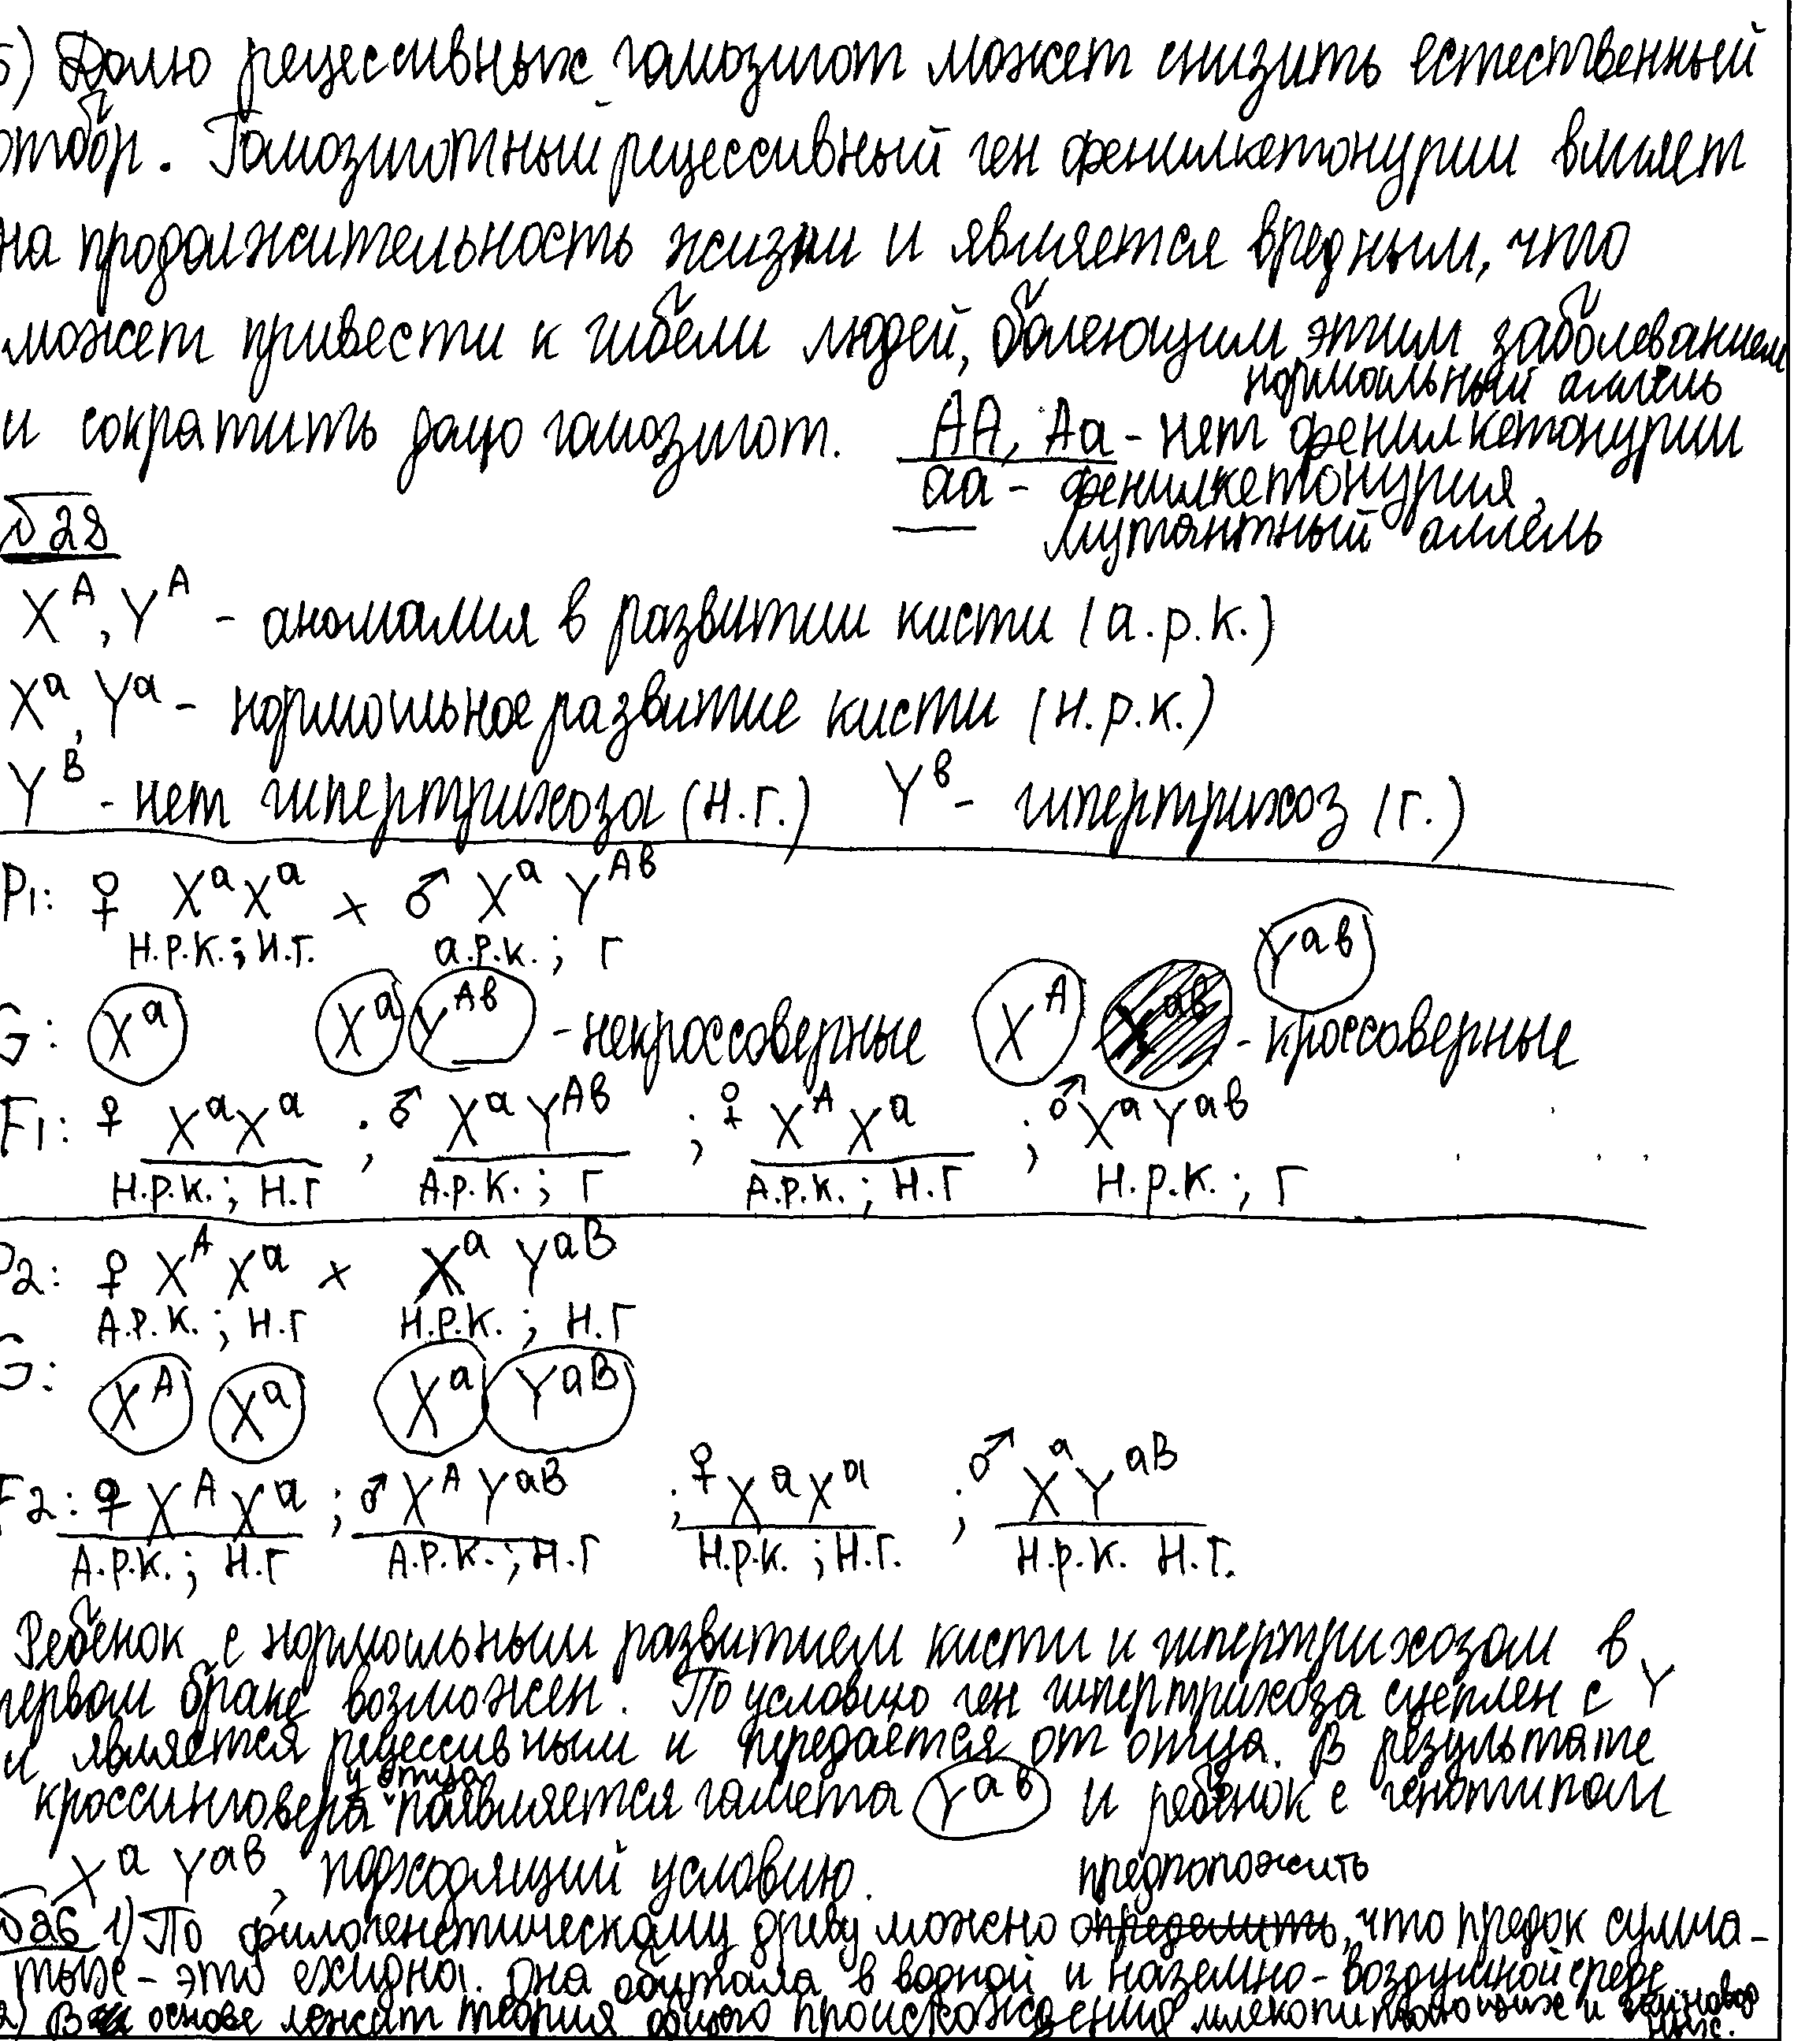 5) Долю рецессивных гомозигот может снизить естественный
отбор. Гомозиготный рецессивный ген фенилкетонурии влияет
на продолжительность жизни и является вредным, что
может привести к гибели людей, болеющим этим заболеванием
и сократить долю гомозигот. AA, Aa - нет фенилкетонурии
нормальный аллель
aa - фенилкетонурия,
мутантный аллель
№28
X^A, Y^A - аномалия в развитии кисти (а.р.к.)
X^a, Y^a - нормальное развитие кисти (н.р.к.)
Y^B - нет гипертрихоза (н.г.) Y^в - гипертрихоз (г.)
P1: ♀ X^a X^a × ♂ X^a Y^Aв
Н.р.к.; н.г. а.р.к.; г
G: X^a X^a Y^Aв - некроссоверные X^A Y^aв - кроссоверные
F1: ♀ X^a X^a ; ♂ X^a Y^Aв ; ♀ X^A X^a ; ♂ X^a Y^aв
Н.р.к.; Н.г А.р.к.; г А.р.к.; Н.г Н.р.к.; г
P2: ♀ X^A X^a × X^a Y^aB
А.р.к.; Н.г Н.р.к.; Н.г
G: X^A X^a X^a Y^aB
F2: ♀ X^A X^a ; ♂ X^A Y^aB ; ♀ X^a X^a ; ♂ X^a Y^aB
А.р.к.; Н.г А.р.к.; Н.г Н.р.к.; Н.г. Н.р.к. Н.г.
Ребёнок с нормальным развитием кисти и гипертрихозом в
первом браке возможен. По условию ген гипертрихоза сцеплен с Y
и является рецессивным и передается от отца. В результате
кроссинговера у отца появляется гамета Y^aв и ребёнок с генотипом
X^a Y^aв, подходящий условию.
предположить
1) По филогенетическому древу можно определить, что предок сумча-
тых - это ехидна. Она обитала в водной и наземно-воздушной среде
2) В основе лежит теория общего происхождения млекопитающих и